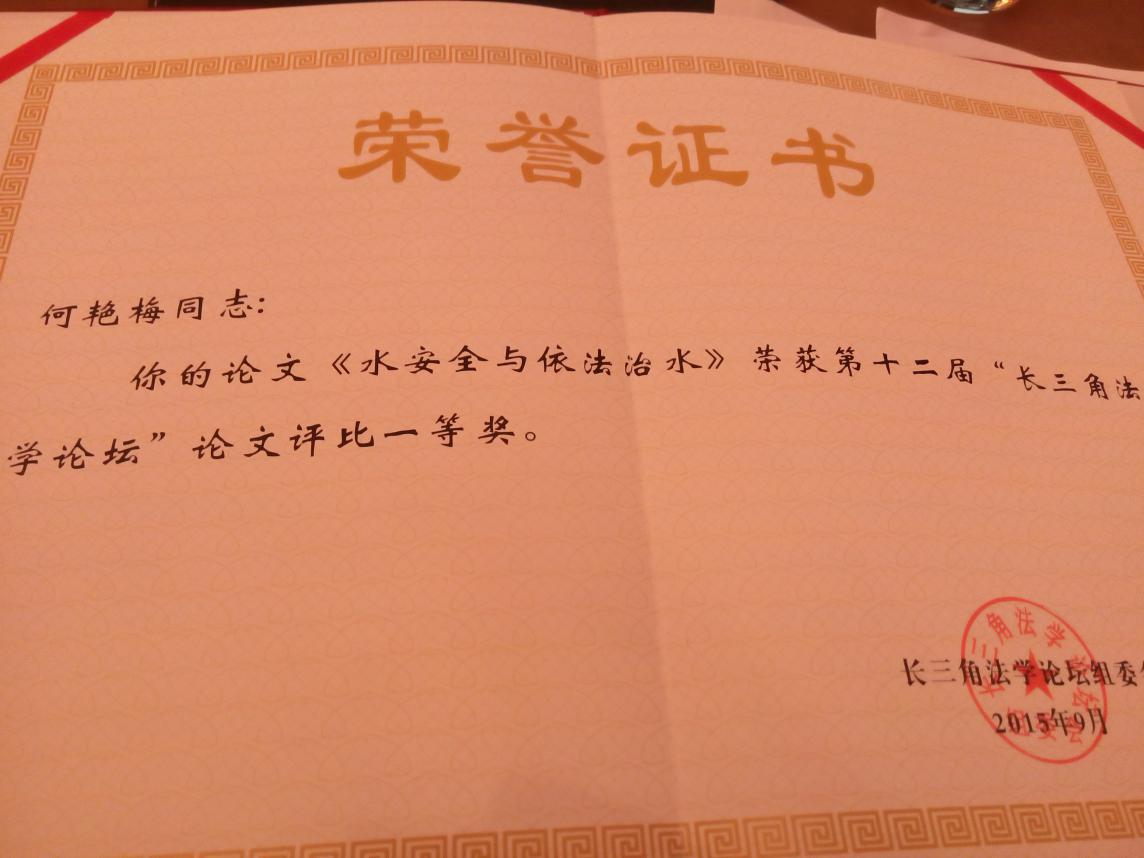 荣誉证书
何艳梅同志:
你的论文《水安全与依法治水》荣获第十二届“长三角法
学论坛”论文评比一等奖。
长三角法学论坛组委
2015年9月
长三角法学论坛
组委会